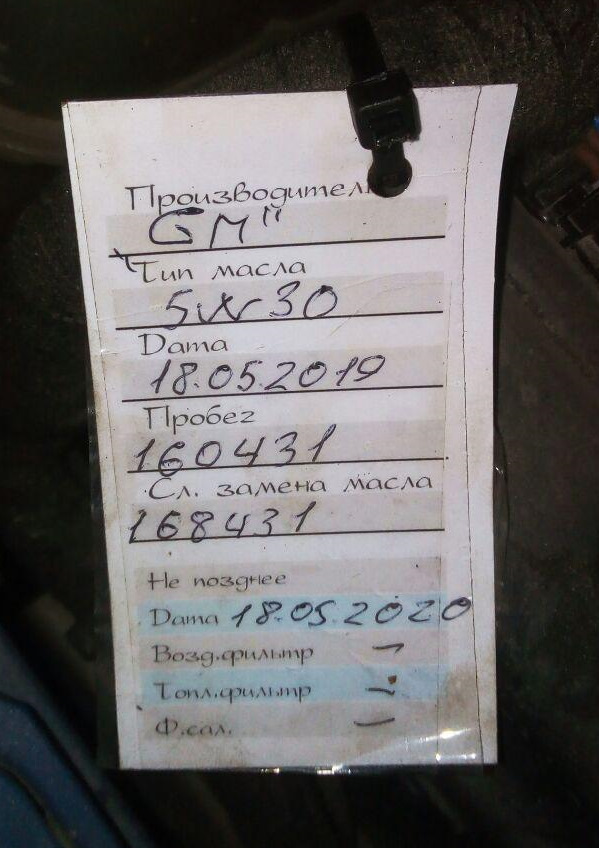 Производитель
GM"
Тип масла
5w30
Дата
18.05.2019
Пробег
160431
Сл. замена масла
168431
Не позднее
Дата 18.05.2020
Возд.фильтр —
Топл.фильтр —
Ф.сал. —